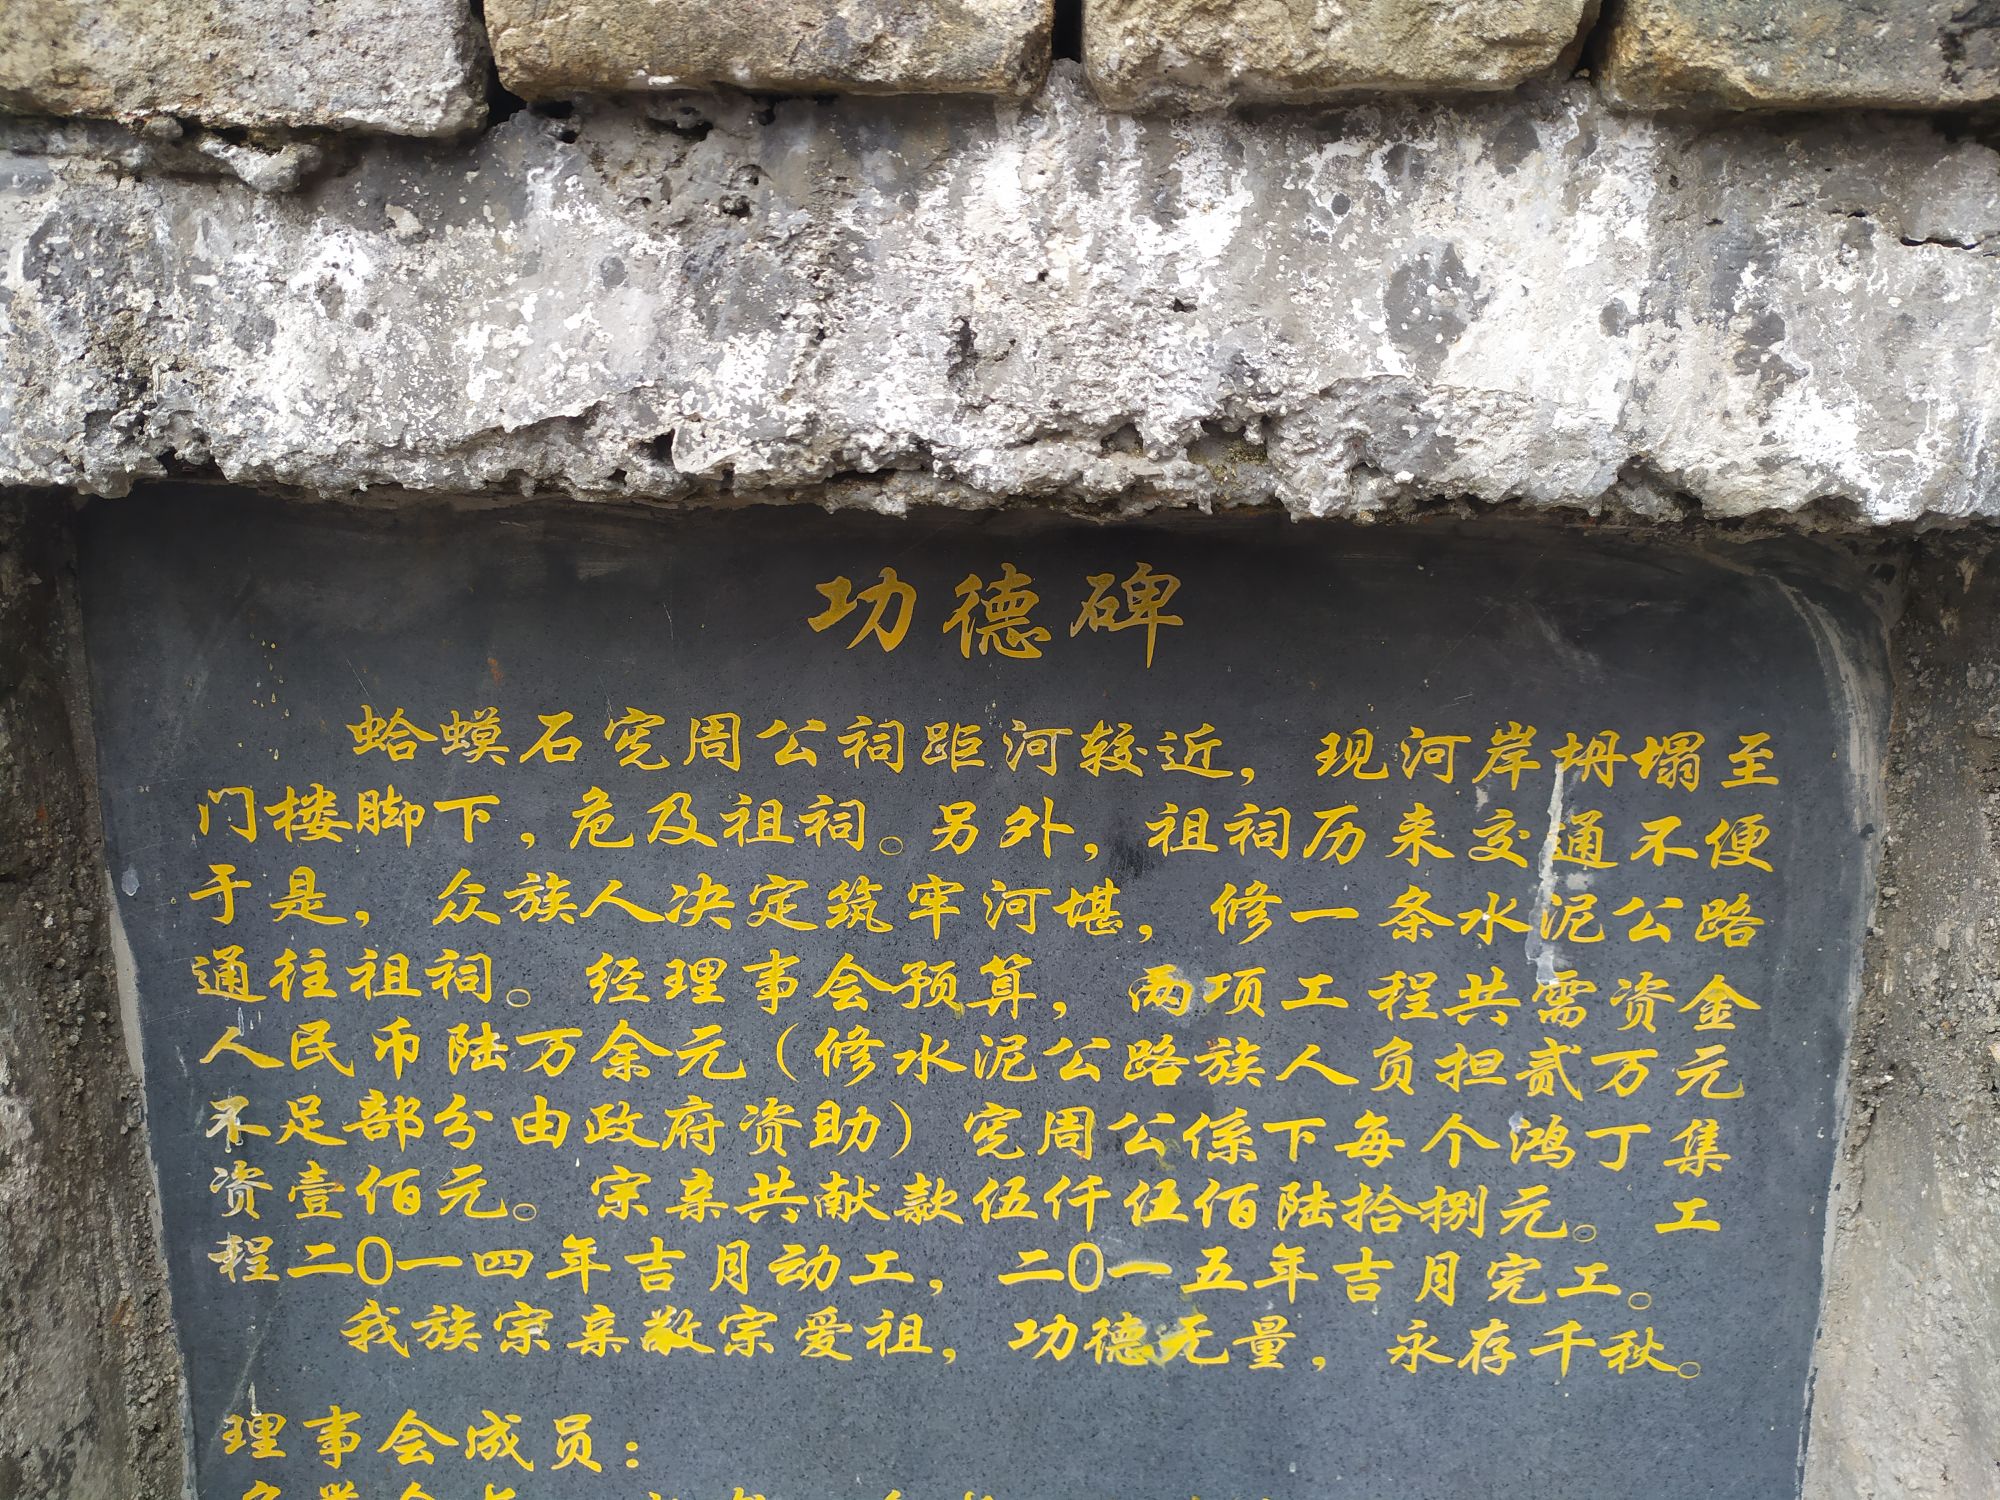 功德碑
蛤蟆石宪周公祠距河较近，现河岸坍塌至
门楼脚下，危及祖祠。另外，祖祠历来交通不便
于是，众族人决定筑牢河堪，修一条水泥公路
通往祖祠。经理事会预算，两项工程共需资金
人民币陆万余元（修水泥公路族人负担贰万元
不足部分由政府资助）宪周公係下每个鸿丁集
资壹佰元。宗亲共献款伍仟伍佰陆拾捌元。工
程二〇一四年吉月动工，二〇一五年吉月完工。
我族宗亲敬宗爱祖，功德无量，永存千秋。
理事会成员：